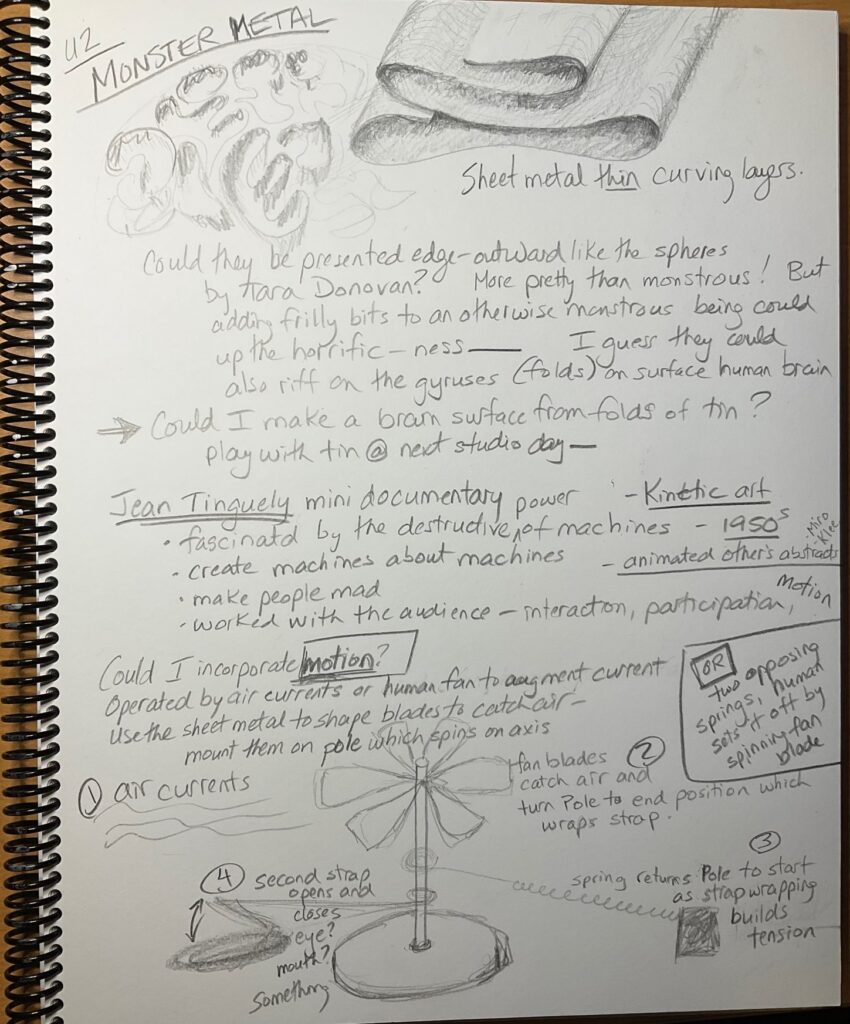 U2
MONSTER METAL
Sheet metal thin curving layers.
Could they be presented edge-outward like the spheres
by Tara Donovan? More pretty than monstrous! But
adding frilly bits to an otherwise monstrous being could
up the horrific-ness — I guess they could
also riff on the gyruses (folds) on surface human brain
→ Could I make a brain surface from folds of tin?
play with tin @ next studio day —
Jean Tinguely mini documentary - Kinetic art
power
• fascinatd by the destructive ^ of machines - 1950s
• Miro
• Klee
• create machines about machines - animated other's abstracts
• make people mad
• worked with the audience - interaction, participation, Motion
Could I incorporate motion?
Operated by air currents or human fan to augment current
Use the sheet metal to shape blades to catch air -
mount them on pole which spins on axis
OR
two opposing
springs, human
sets it off by
spinning fan
blade
① air currents
fan blades ②
catch air and
turn Pole to end position which
wraps strap.
③
spring returns Pole to start
as strap wrapping
builds
tension
④ second strap
opens and
closes
eye?
mouth?
Something